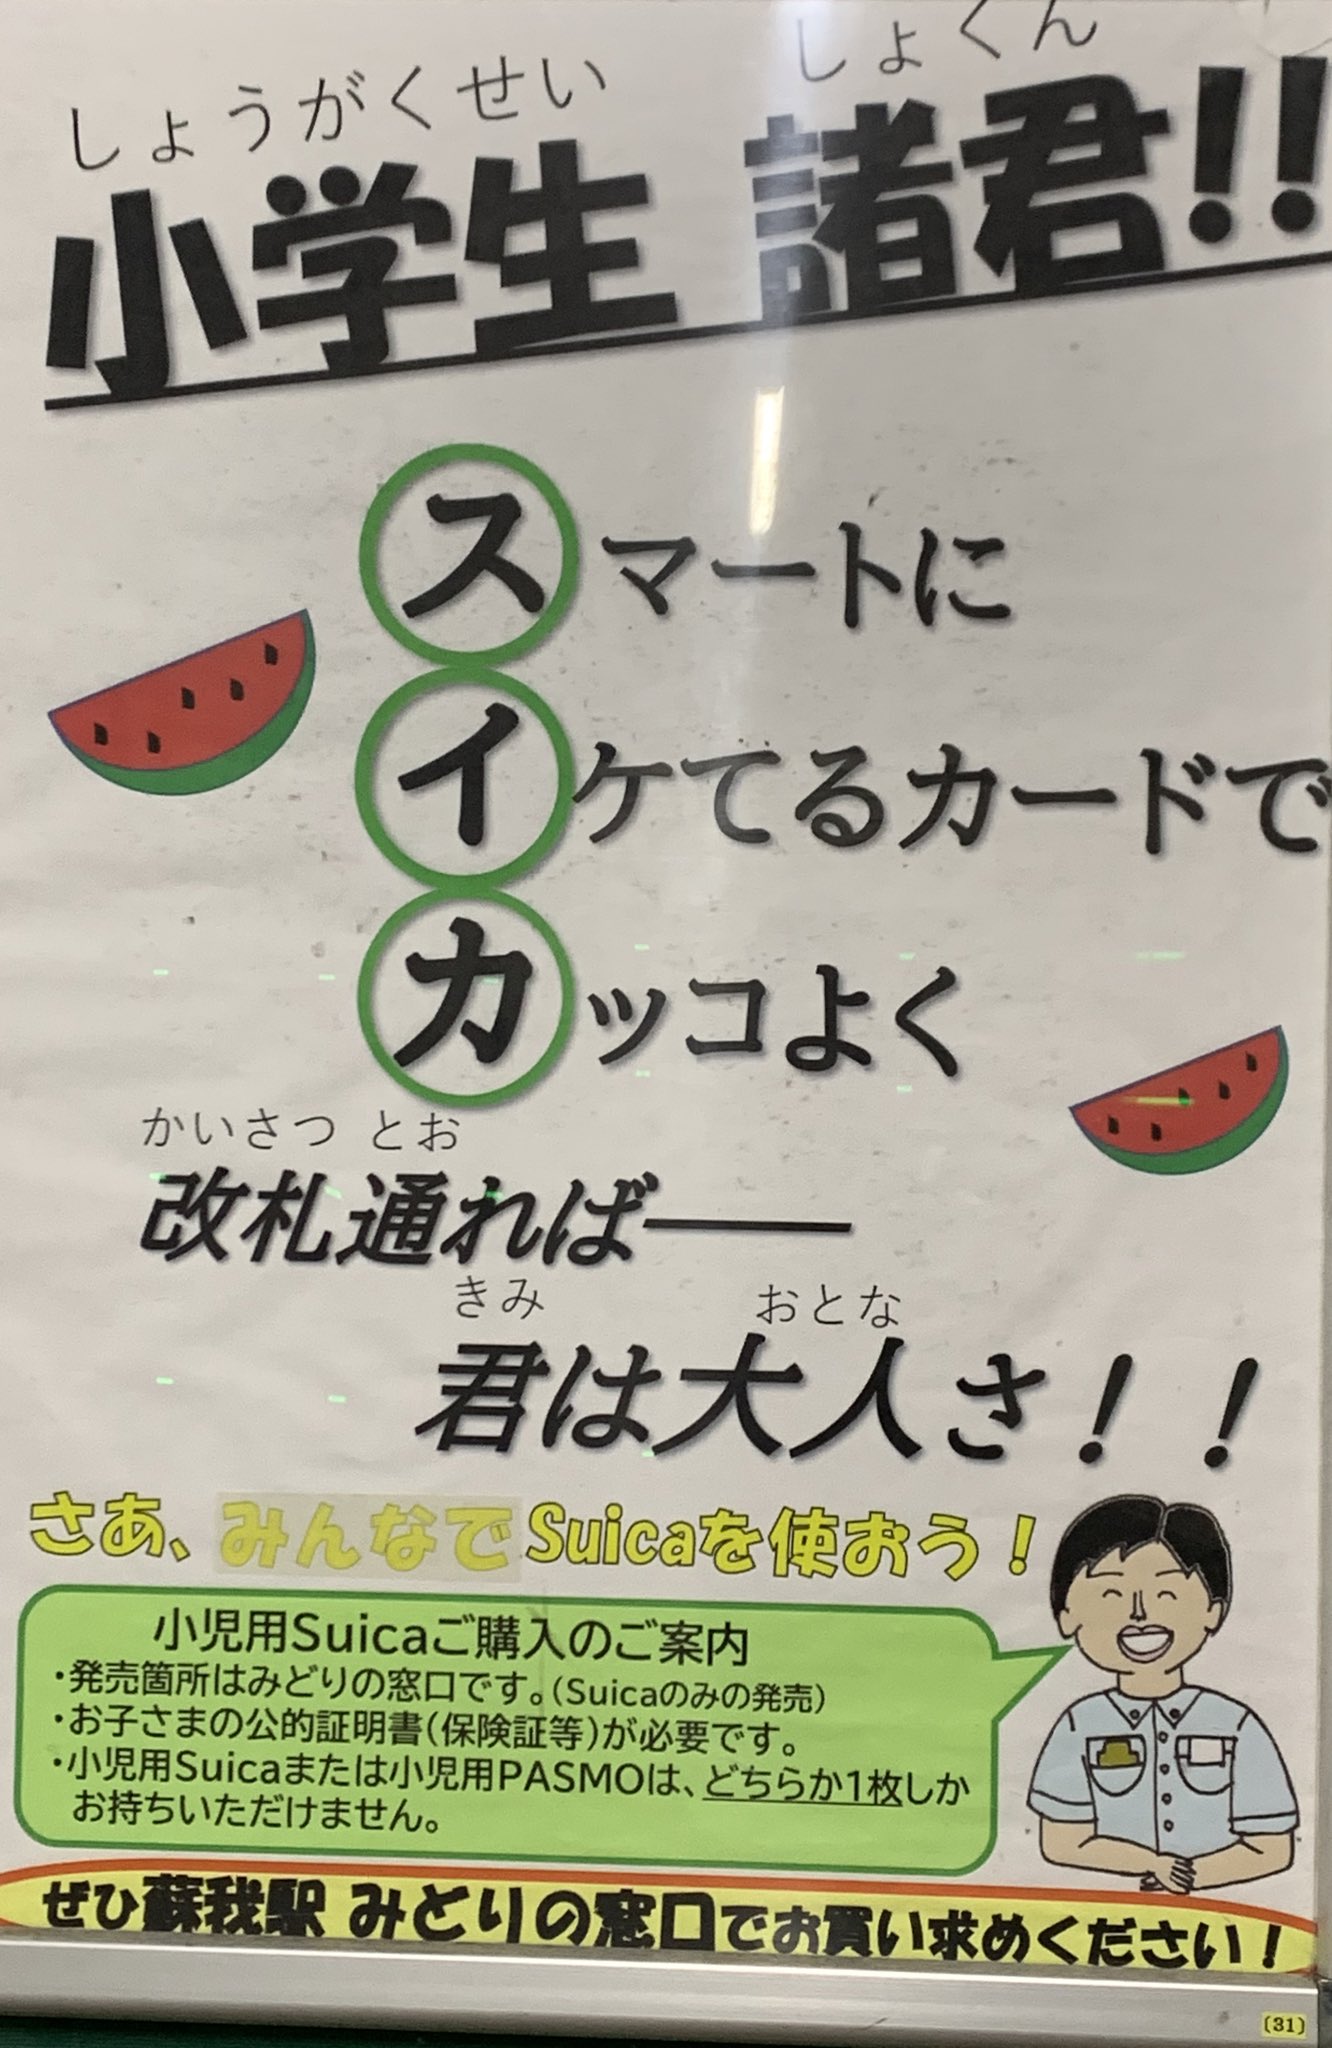 しょうがくせい しょくん
小学生 諸君!!
スマートに
イケてるカードで
カッコよく
かいさつ とお
改札通れば――
きみ おとな
君は大人さ！！
さあ、みんなでSuicaを使おう！
小児用Suicaご購入のご案内
・発売箇所はみどりの窓口です。(Suicaのみの発売)
・お子さまの公的証明書(保険証等)が必要です。
・小児用Suicaまたは小児用PASMOは、どちらか1枚しか
お持ちいただけません。
ぜひ蘇我駅 みどりの窓口でお買い求めください！
(31)